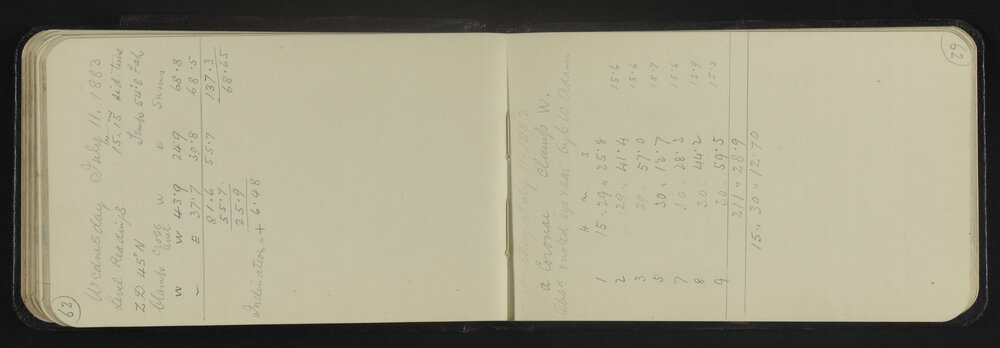 62
Wednesday July 11. 1883
Level Readings 15.15 Sid time
Z D 45° N Temp 54.8 Fah
Clamp Cross level W E Sums
W W 43.9 24.9 68.8
- E 37.7 30.8 68.5
81.6 55.7 137.3
55.7 68.65
25.9
Inclination = + 6.48
62
July 11 1883
α Coronae Clamp W.
Obsd eye & ear by W Adams
H m s
1 15 " 29 " 25.8 15.6
2 29 " 41.4 15.6
3 29 . 57.0 15.7
5 30 " 12.7 15.6
7 30 .. 28.3 15.9
8 30 " 44.2 15.3
9 30 . 59.5
211 " 28.9
15 " 30 " 12.70